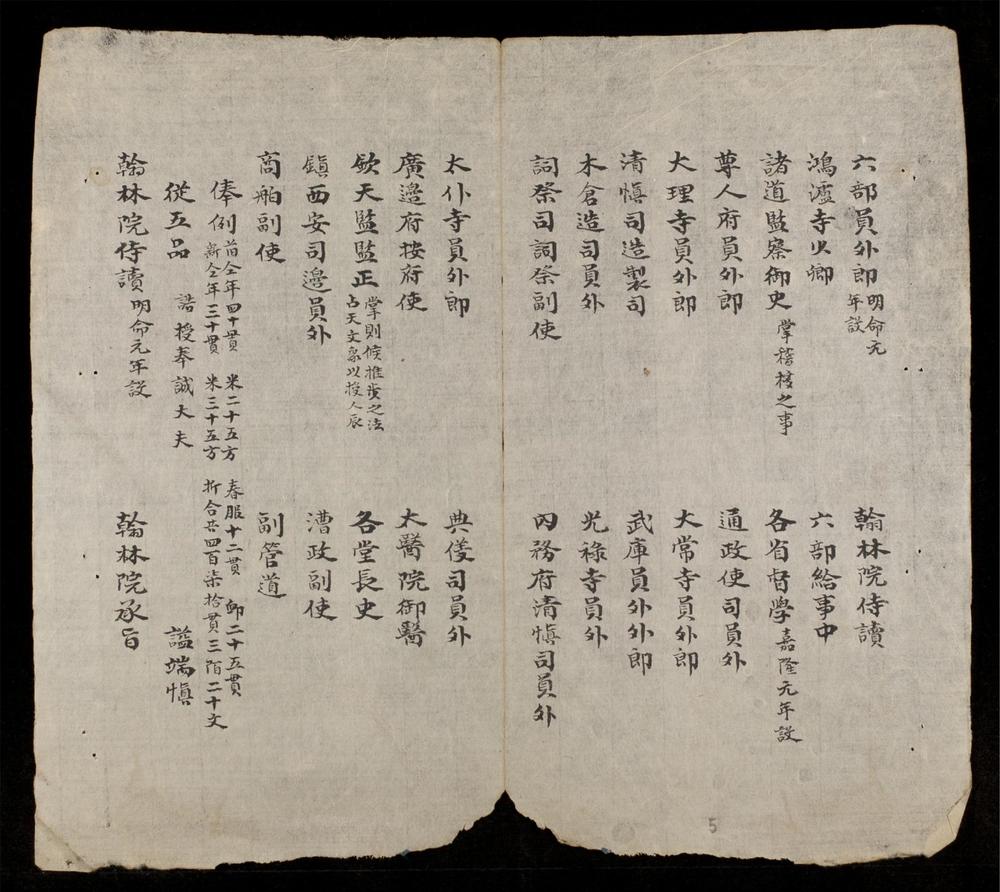 六部員外郎 明命元年設 翰林院侍讀
鴻瀘寺少卿 六部給事中
諸道監察御史 掌稽核之事 各省督學 嘉隆元年設
尊人府員外郎 通政使司員外
大理寺員外郎 太常寺員外郎
清慎司造製司 武庫員外外郎
木倉造司員外 光祿寺員外
詞祭司詞祭副使 內務府清慎司員外
太仆寺員外郎 典儀司員外
廣邉府按府使 太醫院御醫
欽天監監正 掌則候推歩之法占天文象以授人辰 各堂長史
鎮西安司邉員外 漕政副使
商舶副使 副管道
俸例 前仝年四十貫 米二十五方 春服十二貫 卹二十五貫
新仝年三十貫 米三十五方 折合共四百柒拾貫三陌二十文
從五品 誥授奉誠大夫 謚端慎
翰林院侍讀 明命元年設 翰林院承旨
5